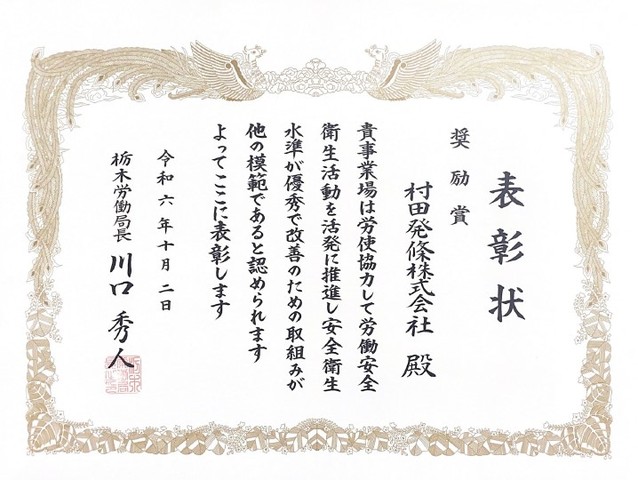 表彰状
奨励賞
村田発條株式会社 殿
貴事業場は労使協力して労働安全
衛生活動を活発に推進し安全衛生
水準が優秀で改善のための取組みが
他の模範であると認められます
よってここに表彰します
令和六年十月二日
栃木労働局長 川口秀人